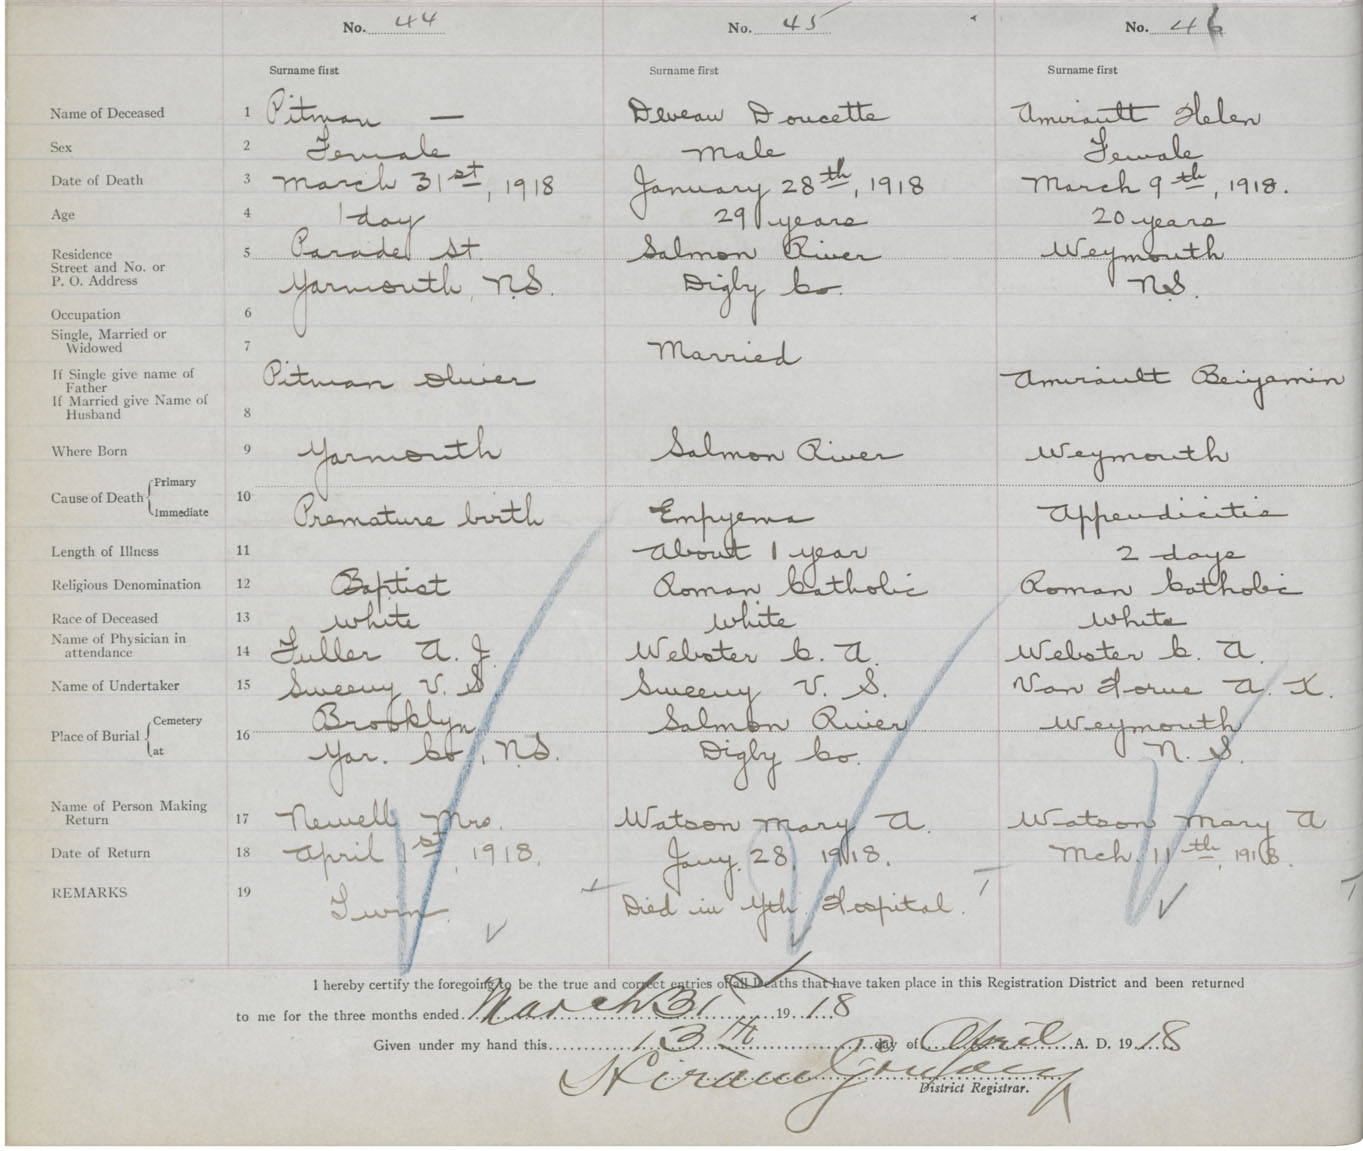 No. 44 No. 45 No. 46
Surname first Surname first Surname first
Name of Deceased 1 Pitman — Deveau Doucette Amirault Helen
Sex 2 Female Male Female
Date of Death 3 March 31st, 1918 January 28th, 1918 March 9th, 1918.
Age 4 1 day 29 years 20 years
Residence 5 Parade St. Salmon River Weymouth
Street and No. or
P. O. Address Yarmouth, N.S. Digby Co. N.S.
Occupation 6
Single, Married or
Widowed 7 Married
If Single give name of
Father Pitman Oliver Amirault Benjamin
If Married give Name of
Husband 8
Where Born 9 Yarmouth Salmon River Weymouth
Cause of Death Primary 10
Immediate Premature birth Empyema Appendicitis
Length of Illness 11 About 1 year 2 days
Religious Denomination 12 Baptist Roman Catholic Roman Catholic
Race of Deceased 13 White White White
Name of Physician in
attendance 14 Fuller A. J. Webster C. A. Webster C. A.
Name of Undertaker 15 Sweeny V. S. Sweeny V. S. Van Horne A. K.
Place of Burial Cemetery 16 Brooklyn Salmon River Weymouth
at Yar. Co., N.S. Digby Co. N. S.
Name of Person Making
Return 17 Newell Mrs. Watson Mary A. Watson Mary A
Date of Return 18 April 1st, 1918. Jany. 28, 1918. Mch. 11th, 1918.
REMARKS 19 Twin Died in Yth. Hospital.
I hereby certify the foregoing to be the true and correct entries of all Deaths that have taken place in this Registration District and been returned
to me for the three months ended March 31 1918
Given under my hand this 13th day of April A. D. 1918
Hiram
District Registrar.